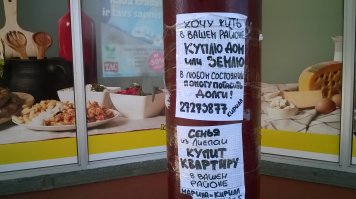 ХОЧУ ЖИТЬ
В ВАШЕМ РАЙОНЕ
КУПЛЮ ДОМ
ИЛИ ЗЕМЛЮ
В ЛЮБОМ СОСТОЯНИИ
ПОМОГУ ПОГАСИТЬ
ДОЛГИ!
27273877
КИРИЛЛ
СЕМЬЯ
ИЗ ЛИЕПАИ
КУПИТ
КВАРТИРУ
В ВАШЕМ
РАЙОНЕ
МАРИНА-КИРИЛЛ